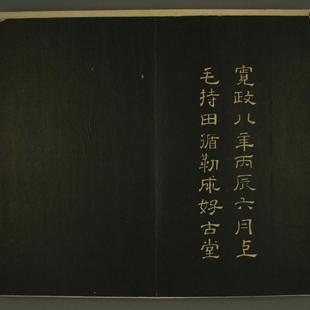 寛政八年丙辰六月上
毛持田循勒成好古堂